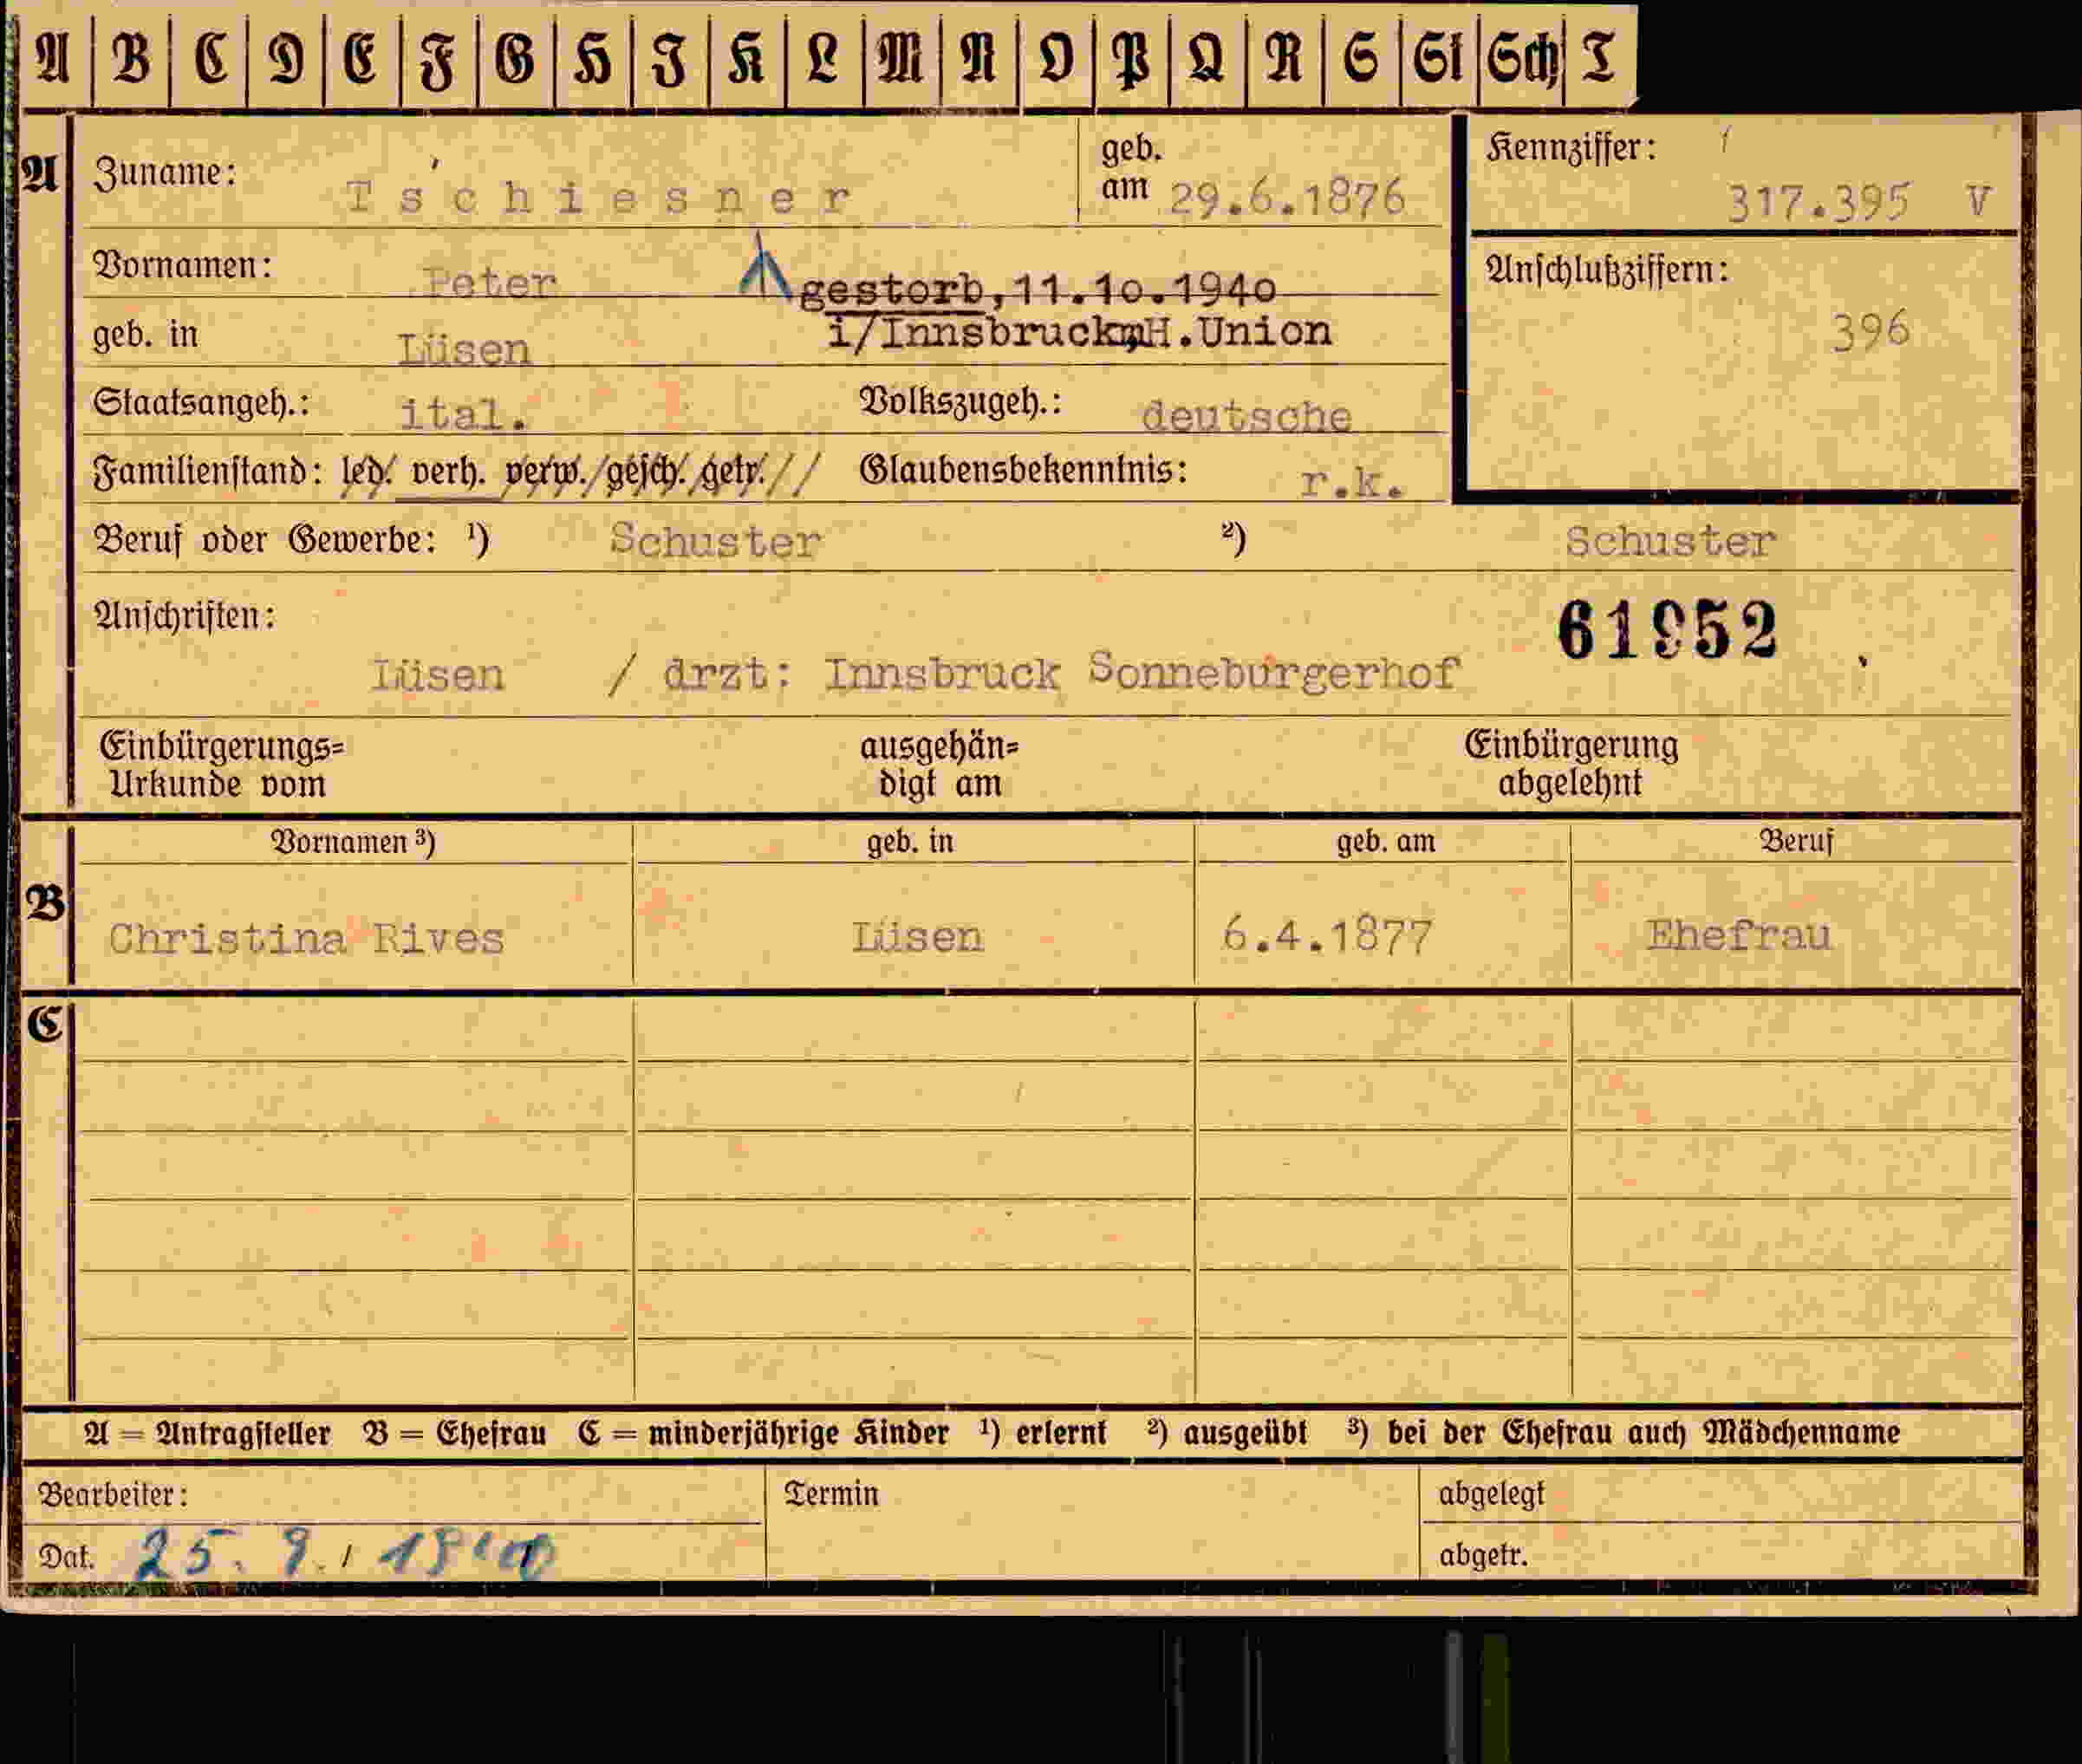 A B C D E F G H I K L M N O P Q R S St Sch T
A Zuname: Tschiesner geb. am 29.6.1876 Kennziffer: 317.395 V
Vornamen: Peter gestorb, 11.10.1940 Anschlußziffern:
geb. in Lüsen i/Innsbruck H.Union 396
Staatsangeh.: ital. Volkszugeh.: deutsche
Familienstand: led. verh. verw. gesch. getr. Glaubensbekenntnis: r.k.
Beruf oder Gewerbe: ¹) Schuster ²) Schuster
Anschriften: 61952
Lüsen / drzt: Innsbruck Sonneburgerhof
Einbürgerungs= ausgehän= Einbürgerung
Urkunde vom digt am abgelehnt
Vornamen ³) geb. in geb. am Beruf
B Christina Rives Lüsen 6.4.1877 Ehefrau
C
A = Antragsteller B = Ehefrau C = minderjährige Kinder ¹) erlernt ²) ausgeübt ³) bei der Ehefrau auch Mädchenname
Bearbeiter: Termin abgelegt
Dat. 25. 9. 1940 abgetr.